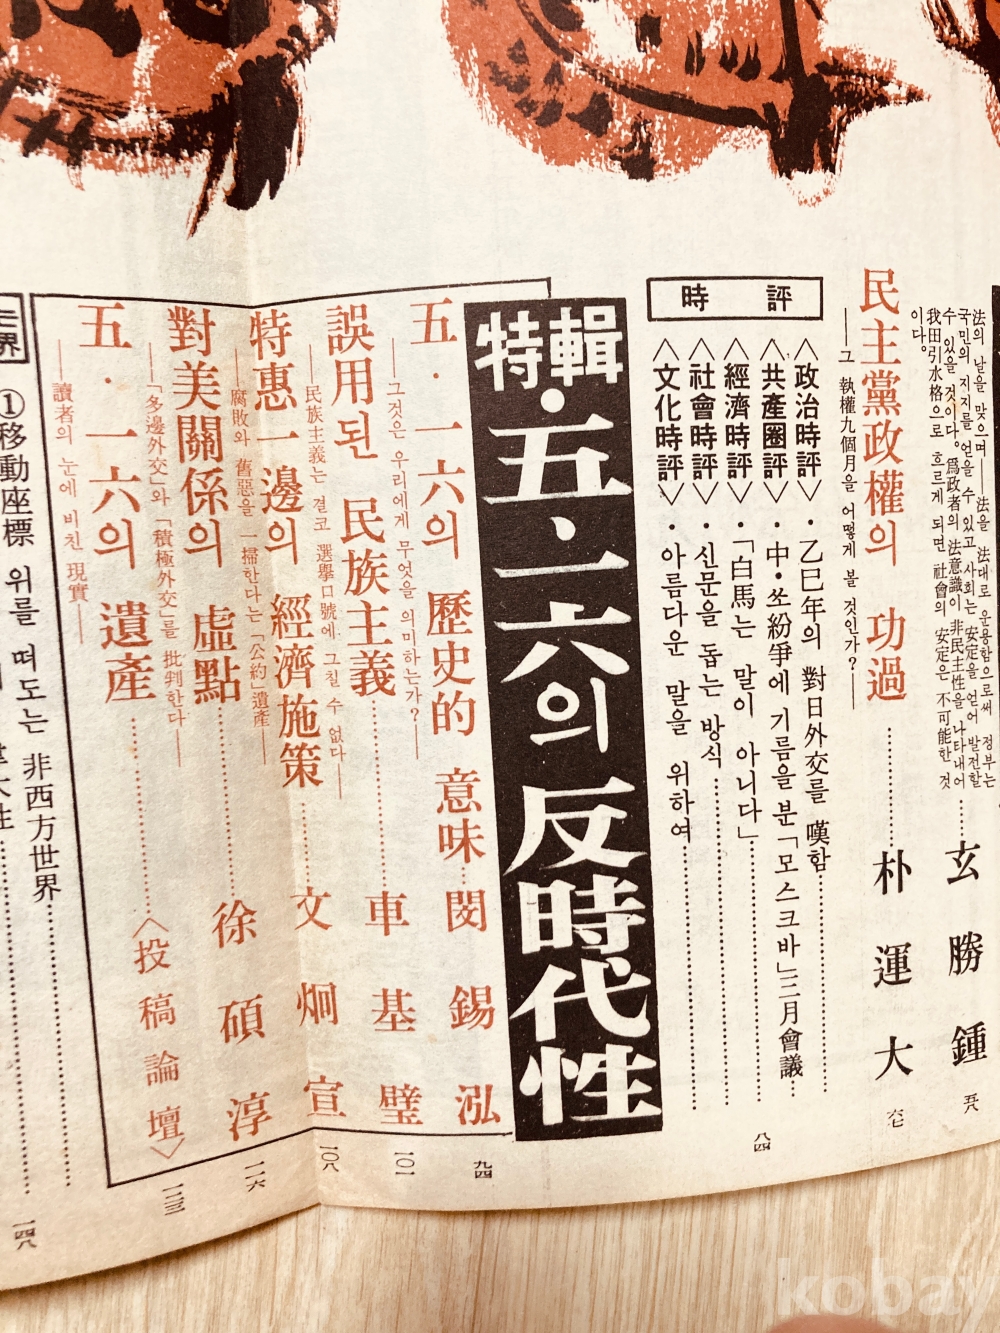 法의 날을 맞으며――法을 法대로 운용함으로써 정부는
국민의 지지를 얻을 수 있고 사회는 安定을 얻어 발전할
수 있을 것이다。爲政者의 法意識이 非民主性을 나타내어
我田引水格으로 흐르게 되면 社會의 安定은 不可能한 것
이다。
玄勝鍾 五八
民主黨政權의 功過 朴運大 六七
――그 執權九個月을 어떻게 볼 것인가?――
時評
〈政治時評〉・乙巳年의 對日外交를 嘆함
〈共產圈評〉・中・쏘紛爭에 기름을 분「모스크바」三月會議
〈經濟時評〉・「白馬는 말이 아니다」
〈社會時評〉・신문을 돕는 방식
〈文化時評〉・아름다운 말을 위하여
八四
特輯・五・一六의 反時代性
五・一六의 歷史的 意味 閔錫泓 九四
――그것은 우리에게 무엇을 의미하는가?――
誤用된 民族主義 車基璧 一〇一
――民族主義는 결코 選擧口號에 그칠 수 없다――
特惠一邊의 經濟施策 文炯宣 一〇八
――腐敗와 舊惡을 一掃한다는「公約」遺產――
對美關係의 虛點 徐碩淳 一一六
――「多邊外交」와「積極外交」를 批判한다――
五・一六의 遺產 〈投稿論壇〉 一二三
――讀者의 눈에 비친 現實――
①移動座標 위를 떠도는 非西方世界
一四八
kobay